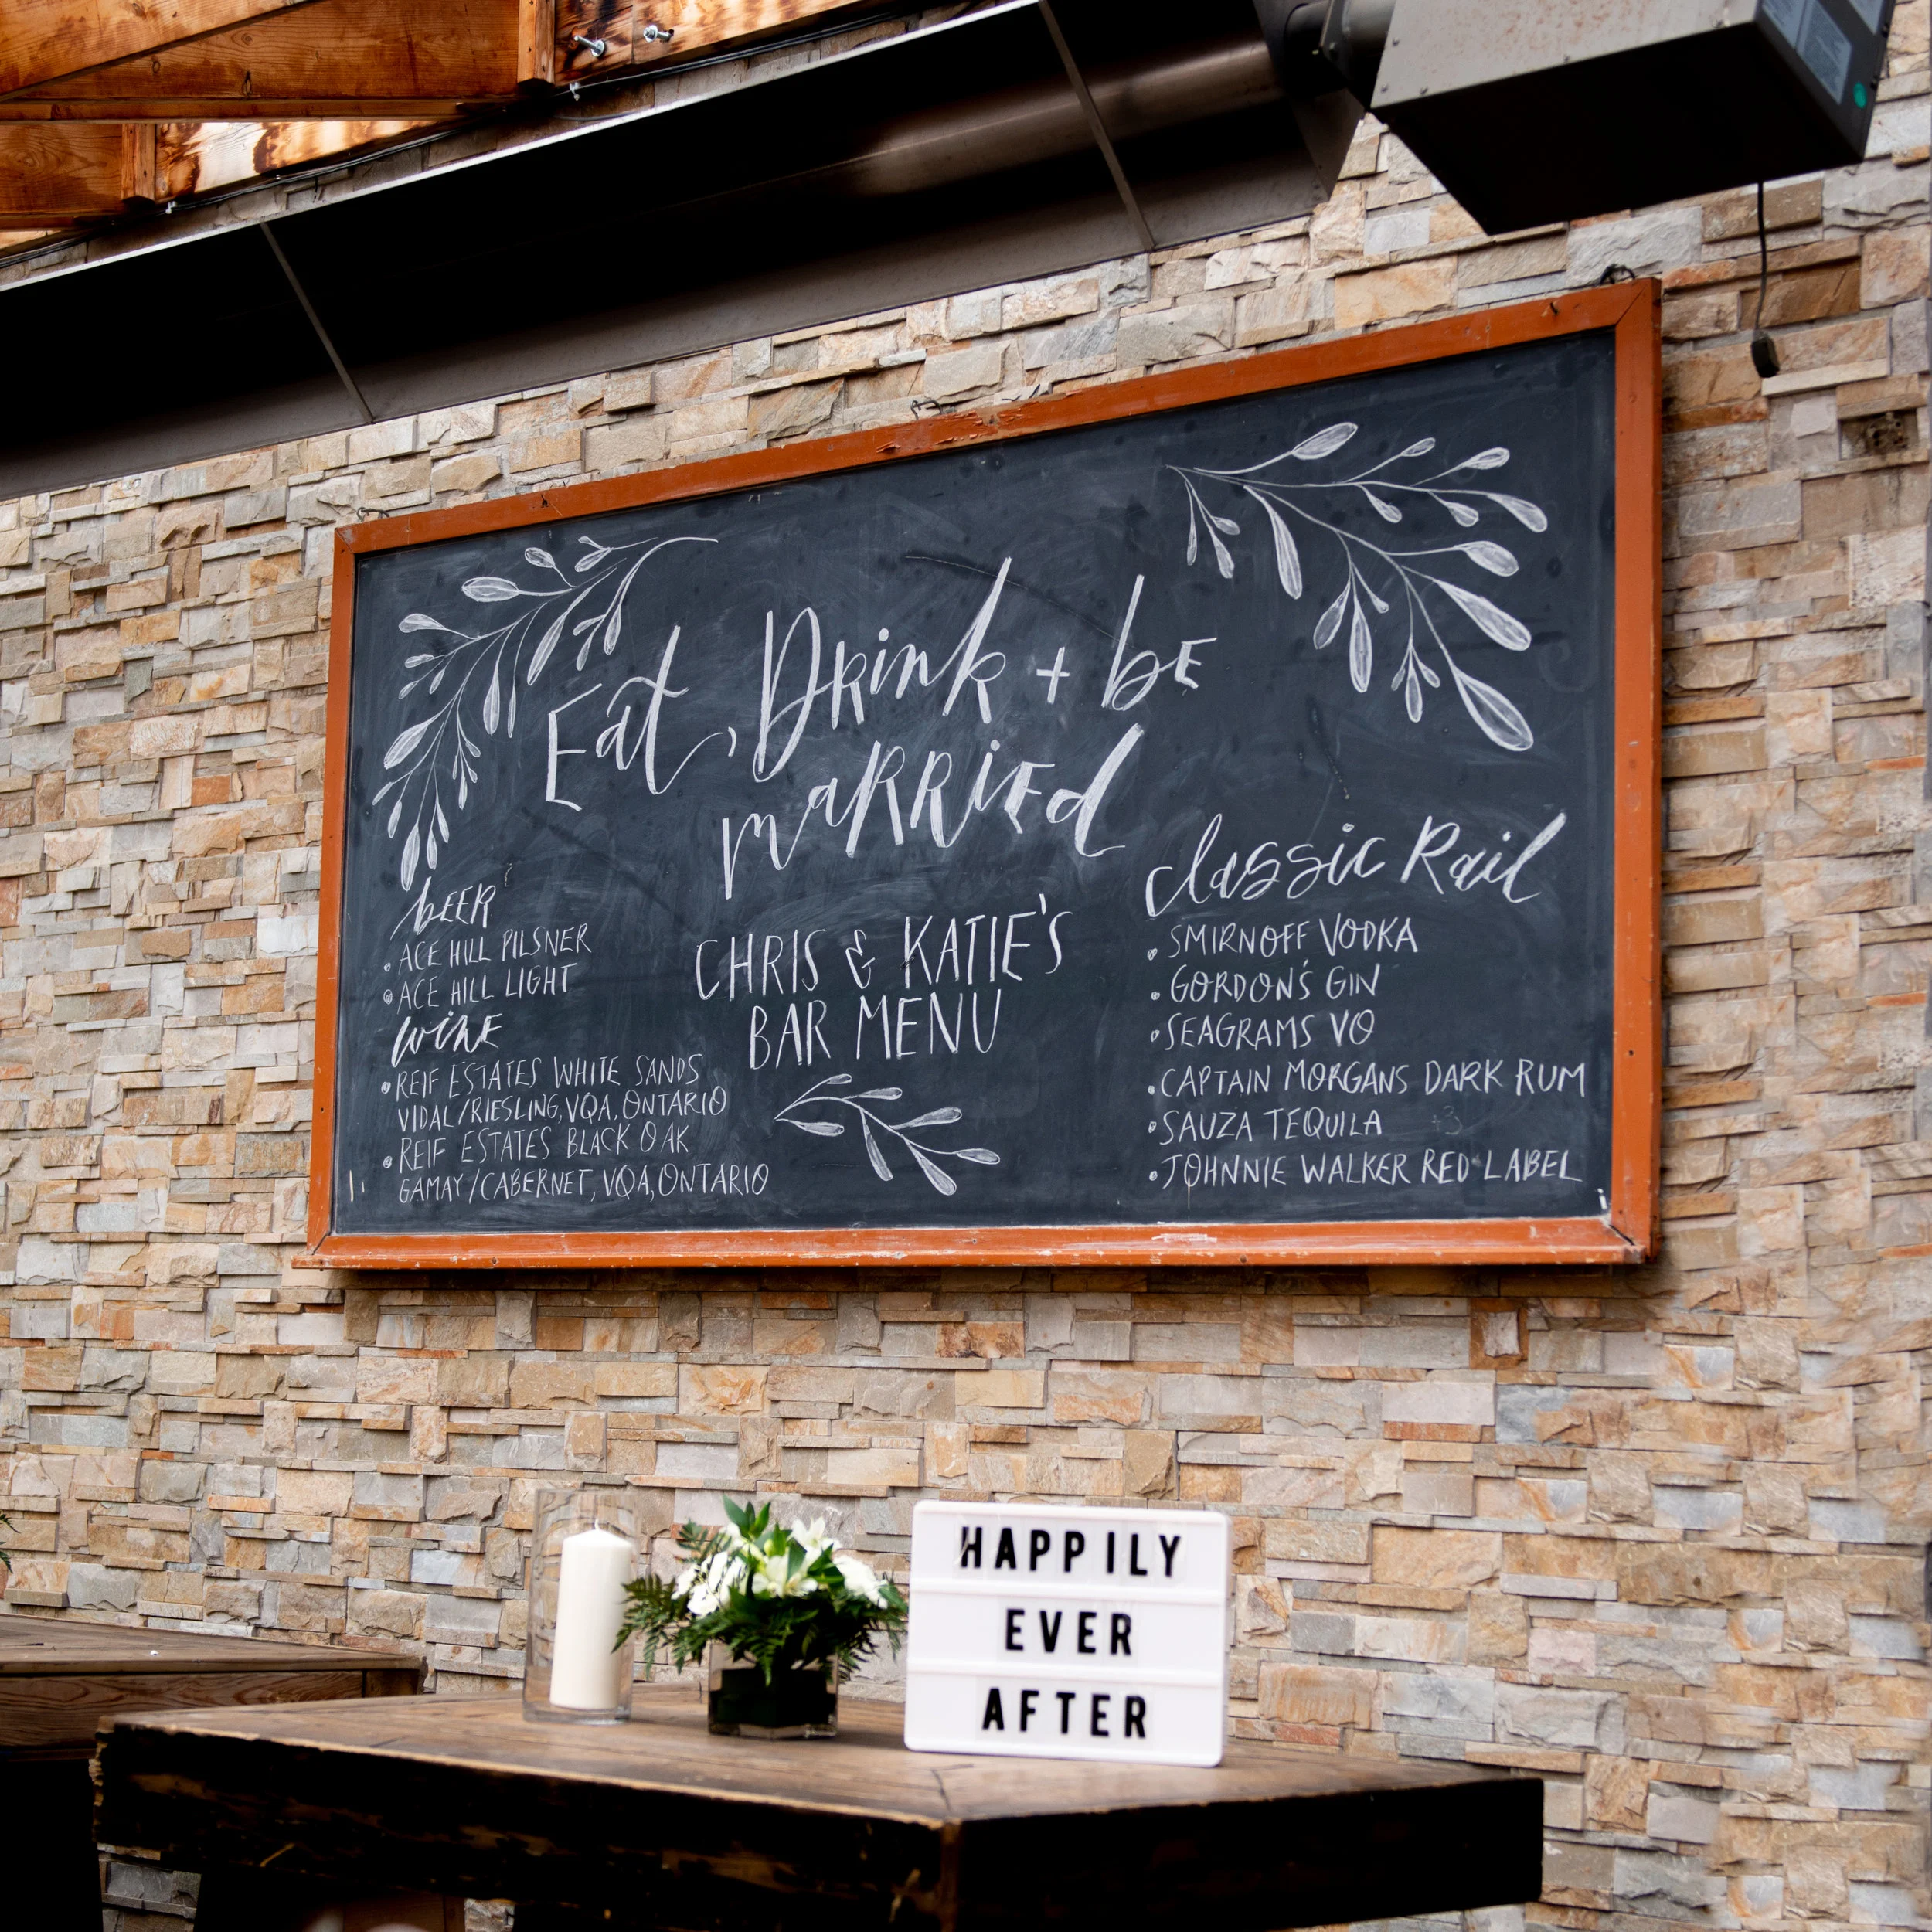 Eat, Drink + be
married
beer
• ACE HILL PILSNER
• ACE HILL LIGHT
wine
• REIF ESTATES WHITE SANDS
VIDAL/RIESLING, VQA, ONTARIO
• REIF ESTATES BLACK OAK
GAMAY/CABERNET, VQA, ONTARIO
CHRIS & KATIE'S
BAR MENU
classic Rail
• SMIRNOFF VODKA
• GORDON'S GIN
• SEAGRAMS VO
• CAPTAIN MORGANS DARK RUM
• SAUZA TEQUILA
• JOHNNIE WALKER RED LABEL
HAPPILY
EVER
AFTER